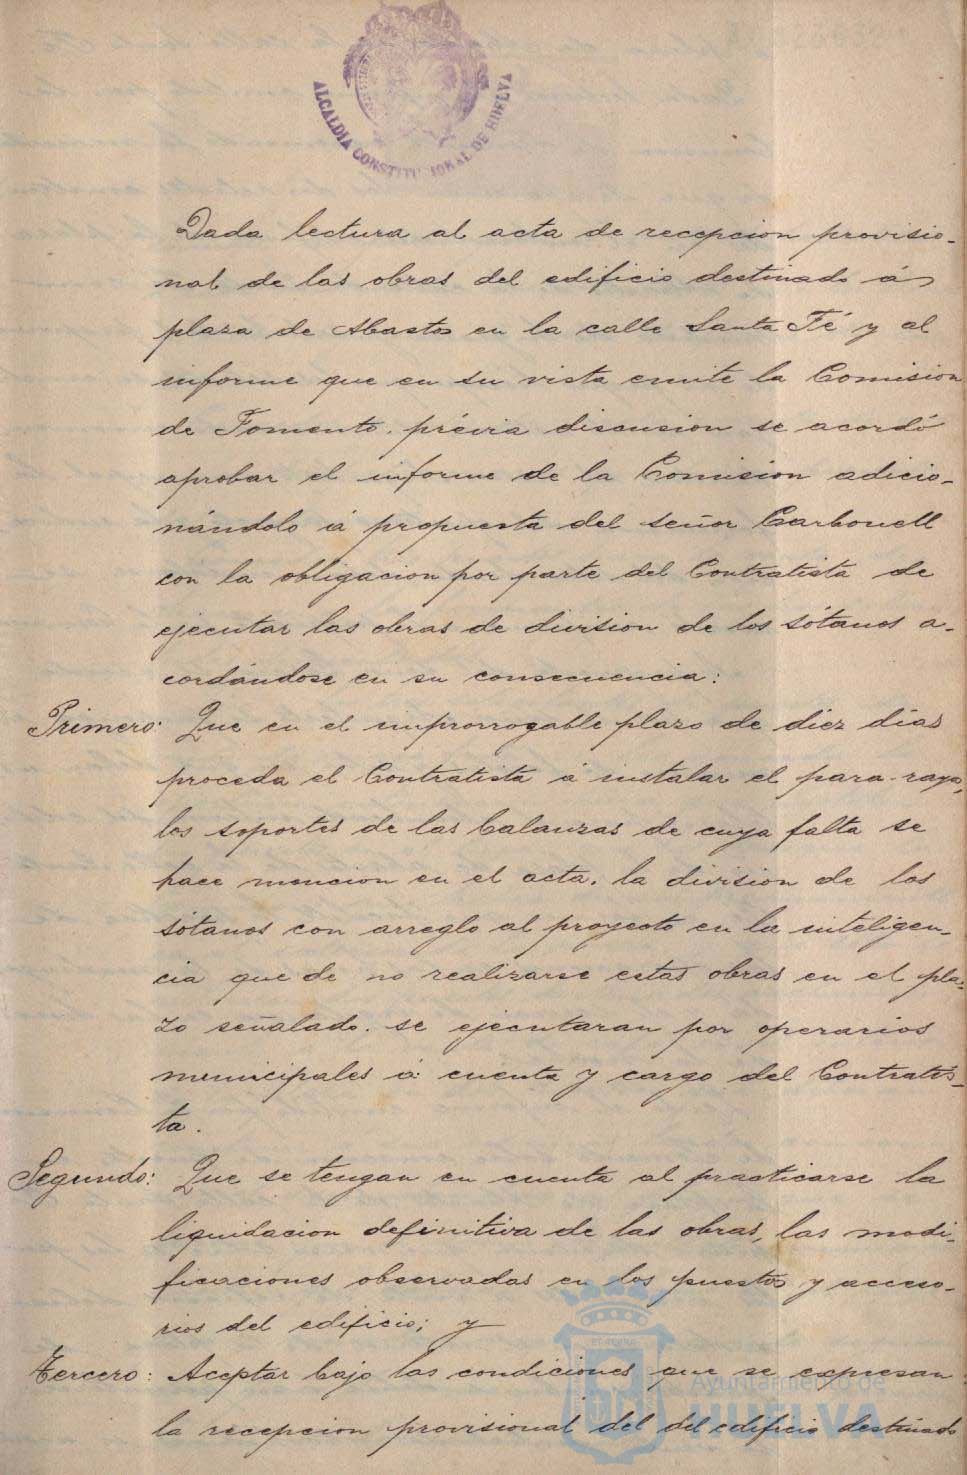 ALCALDIA CONSTITUCIONAL DE HUELVA
Dada lectura al acta de recepcion provisio-
nal de las obras del edificio destinado á
plaza de Abastos en la calle Santa Fé y al
informe que en su vista emite la Comision
de Fomento. prévia discusion se acordó
aprobar el informe de la Comision adicio-
nándolo á propuesta del señor Carbonell
con la obligacion por parte del Contratista de
ejecutar las obras de division de los sótanos a-
cordándose en su consecuencia:
Primero: Que en el improrrogable plazo de diez días
proceda el Contratista á instalar el para-rayo,
los soportes de las balanzas de cuya falta se
hace mencion en el acta. la division de los
sótanos con arreglo al proyecto en la inteligen-
cia que de no realizarse estas obras en el pla-
zo señalado. se ejecutaran por operarios
municipales á cuenta y cargo del Contratis-
ta.
Segundo: Que se tengan en cuenta al practicarse la
liquidacion definitiva de las obras, las modi-
ficaciones observadas en los puestos y acceso-
rios del edificio; y
Tercero: Aceptar bajo las condiciones que se expresan
la recepcion provisional del del edificio destinado
Ayuntamiento de
HUELVA